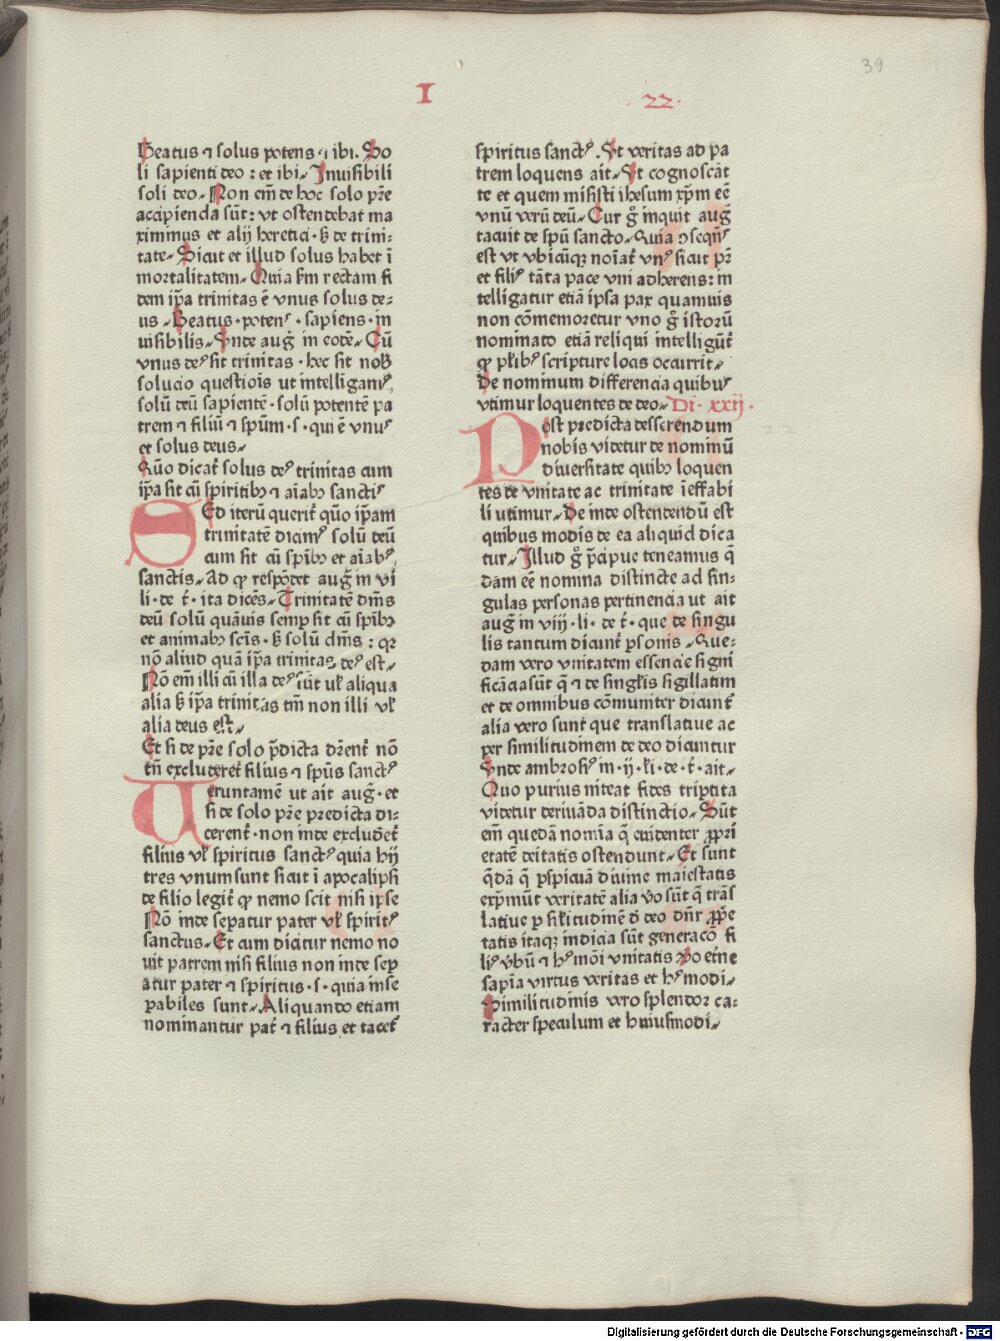 39
I
·22·
Beatus ⁊ solus potens ⁊ ibi. So
li sapienti deo : et ibi. Inuisibili
soli deo. Non em̄ de hoc solo pr̄e
accipienda sūt: vt ostendebat ma
ximinus et alij heretici · ꝫ de trini-
tate. Sicut et illud solus habet ī
mortalitatem. Quia ẜm rectam fi
dem ip̄a trinitas ē vnus solus de-
us. Beatus · potenꝰ · sapiens · in
uisibilis. Vnde auḡ in eodē. Cū
vnus deꝰ sit trinitas · hec sit nob̄
solucio questiōis ut intelligamꝰ
solū deū sapientē · solū potentē pa
trem ⁊ filiū ⁊ spūm · s · qui ē vnuꝰ
et solus deus.
Quō dicat̄ solus deꝰ trinitas cum
ip̄a sit cū spiritibꝫ ⁊ aīabꝫ sanctiꝰ
SEd iterū querit̄ quō ip̄am
trinitatē dicamꝰ solū deū
cum sit cū spībꝫ et aīabꝰ
sanctis. Ad qꝫ respōdet auḡ in vi
li · de t̄ · ita dicēs. Trinitatē dīms
deū solū quāuis semp̄ sit cū spībꝫ
et animabꝫ scīs · ꝫ solū dīms : qꝫ
nō aliud quā ip̄a trinitas deꝰ est.
Nō em̄ illi cū illa deꝰ sūt vł aliqua
alia ꝫ ip̄a trinitas tm̄ non illi vł
alia deus est.
Et si de pr̄e solo p̄dicta dr̄ent̄ nō
tn̄ excluderet̄ filius ⁊ spūs sanctꝰ
Veruntamē ut ait auḡ · et
si de solo pr̄e predicta di-
cerent̄ · non inde excludet̄
filius vł spiritus sanctꝰ quia hij
tres vnum sunt sicut ī apocalipsi
de filio legit̄ qꝫ nemo scit nisi ip̄se
Nō inde sepatur pater vł spiritꝰ
sanctus. Et cum dicitur nemo no
uit patrem nisi filius non inde sep
atur pater ⁊ spiritus · s · quia inse
pabiles sunt. Aliquando etiam
nominantur pat̄ ⁊ filius et tacet̄
spiritus sanctꝰ. Vt veritas ad pa
trem loquens ait. Vt cognoscāt
te et quem misisti ihesum xp̄m eē
vnū verū deū. Cur g̊ inquit auḡ
tacuit de spū sancto. Quia ↄseqn̄ꝰ
est vt vbicūqꝫ noīat̄ vnꝰ sicut pr̄
et filiꝰ tāta pace vni adherens: in
telligatur etiā ipsa pax quamuis
non cōmemoretur vno g̊ istorū
nominato etiā reliqui intelligūt̄
qꝫ pl̄ibꝰ scripture locis occurrit.
De nominum differencia quibuꝰ
vtimur loquentes de deo. Di · xxij ·
Post predicta desserendum
nobis videtur de nominū
diuersitate quibꝫ loquen
tes de vnitate ac trinitate īeffabi
li utimur. De inde ostendendū est
quibus modis de ea aliquid dica
tur. Illud g̊ p̄cipue teneamus q̄
dam eē nomina distincte ad sin-
gulas personas pertinencia ut ait
auḡ in viij · li · de t̄ · que de singu
lis tantum dicunt̄ ꝑsonis. Que-
dam vero vnitatem essencie signi
ficācia sūt q̄ ⁊ de singl̄is sigillatim
et de omnibus cōmuniter dicunt̄
alia vero sunt que translatiue ac
per similitudinem de deo dicuntur
Vnde ambrosiꝰ in · ij · li · de · t̄ · ait.
Quo purius niteat fides triptita
videtur deriuāda distinctio. Sūt
em̄ quedā nomīa q̄ euidenter ꝓpri
etatē deitatis ostendunt. Et sunt
q̄dā q̄ ꝑspicuā diuine maiestatis
exp̄mūt veritatē alia v̊o sūt q̄ trās
latiue ꝑ similitudinē d̄ deo dn̄r ꝓp̄e
tatis itaqꝫ indicia sūt generacō fi
liꝰ v̄bū ⁊ hꝰ mōi vnitatis v̊o et̄ne
sapīa virtus veritas et hꝰ modi.
Similitudinis vero splendor ca-
racter speculum et huiusmodi.
Digitalisierung gefördert durch die Deutsche Forschungsgemeinschaft - DFG